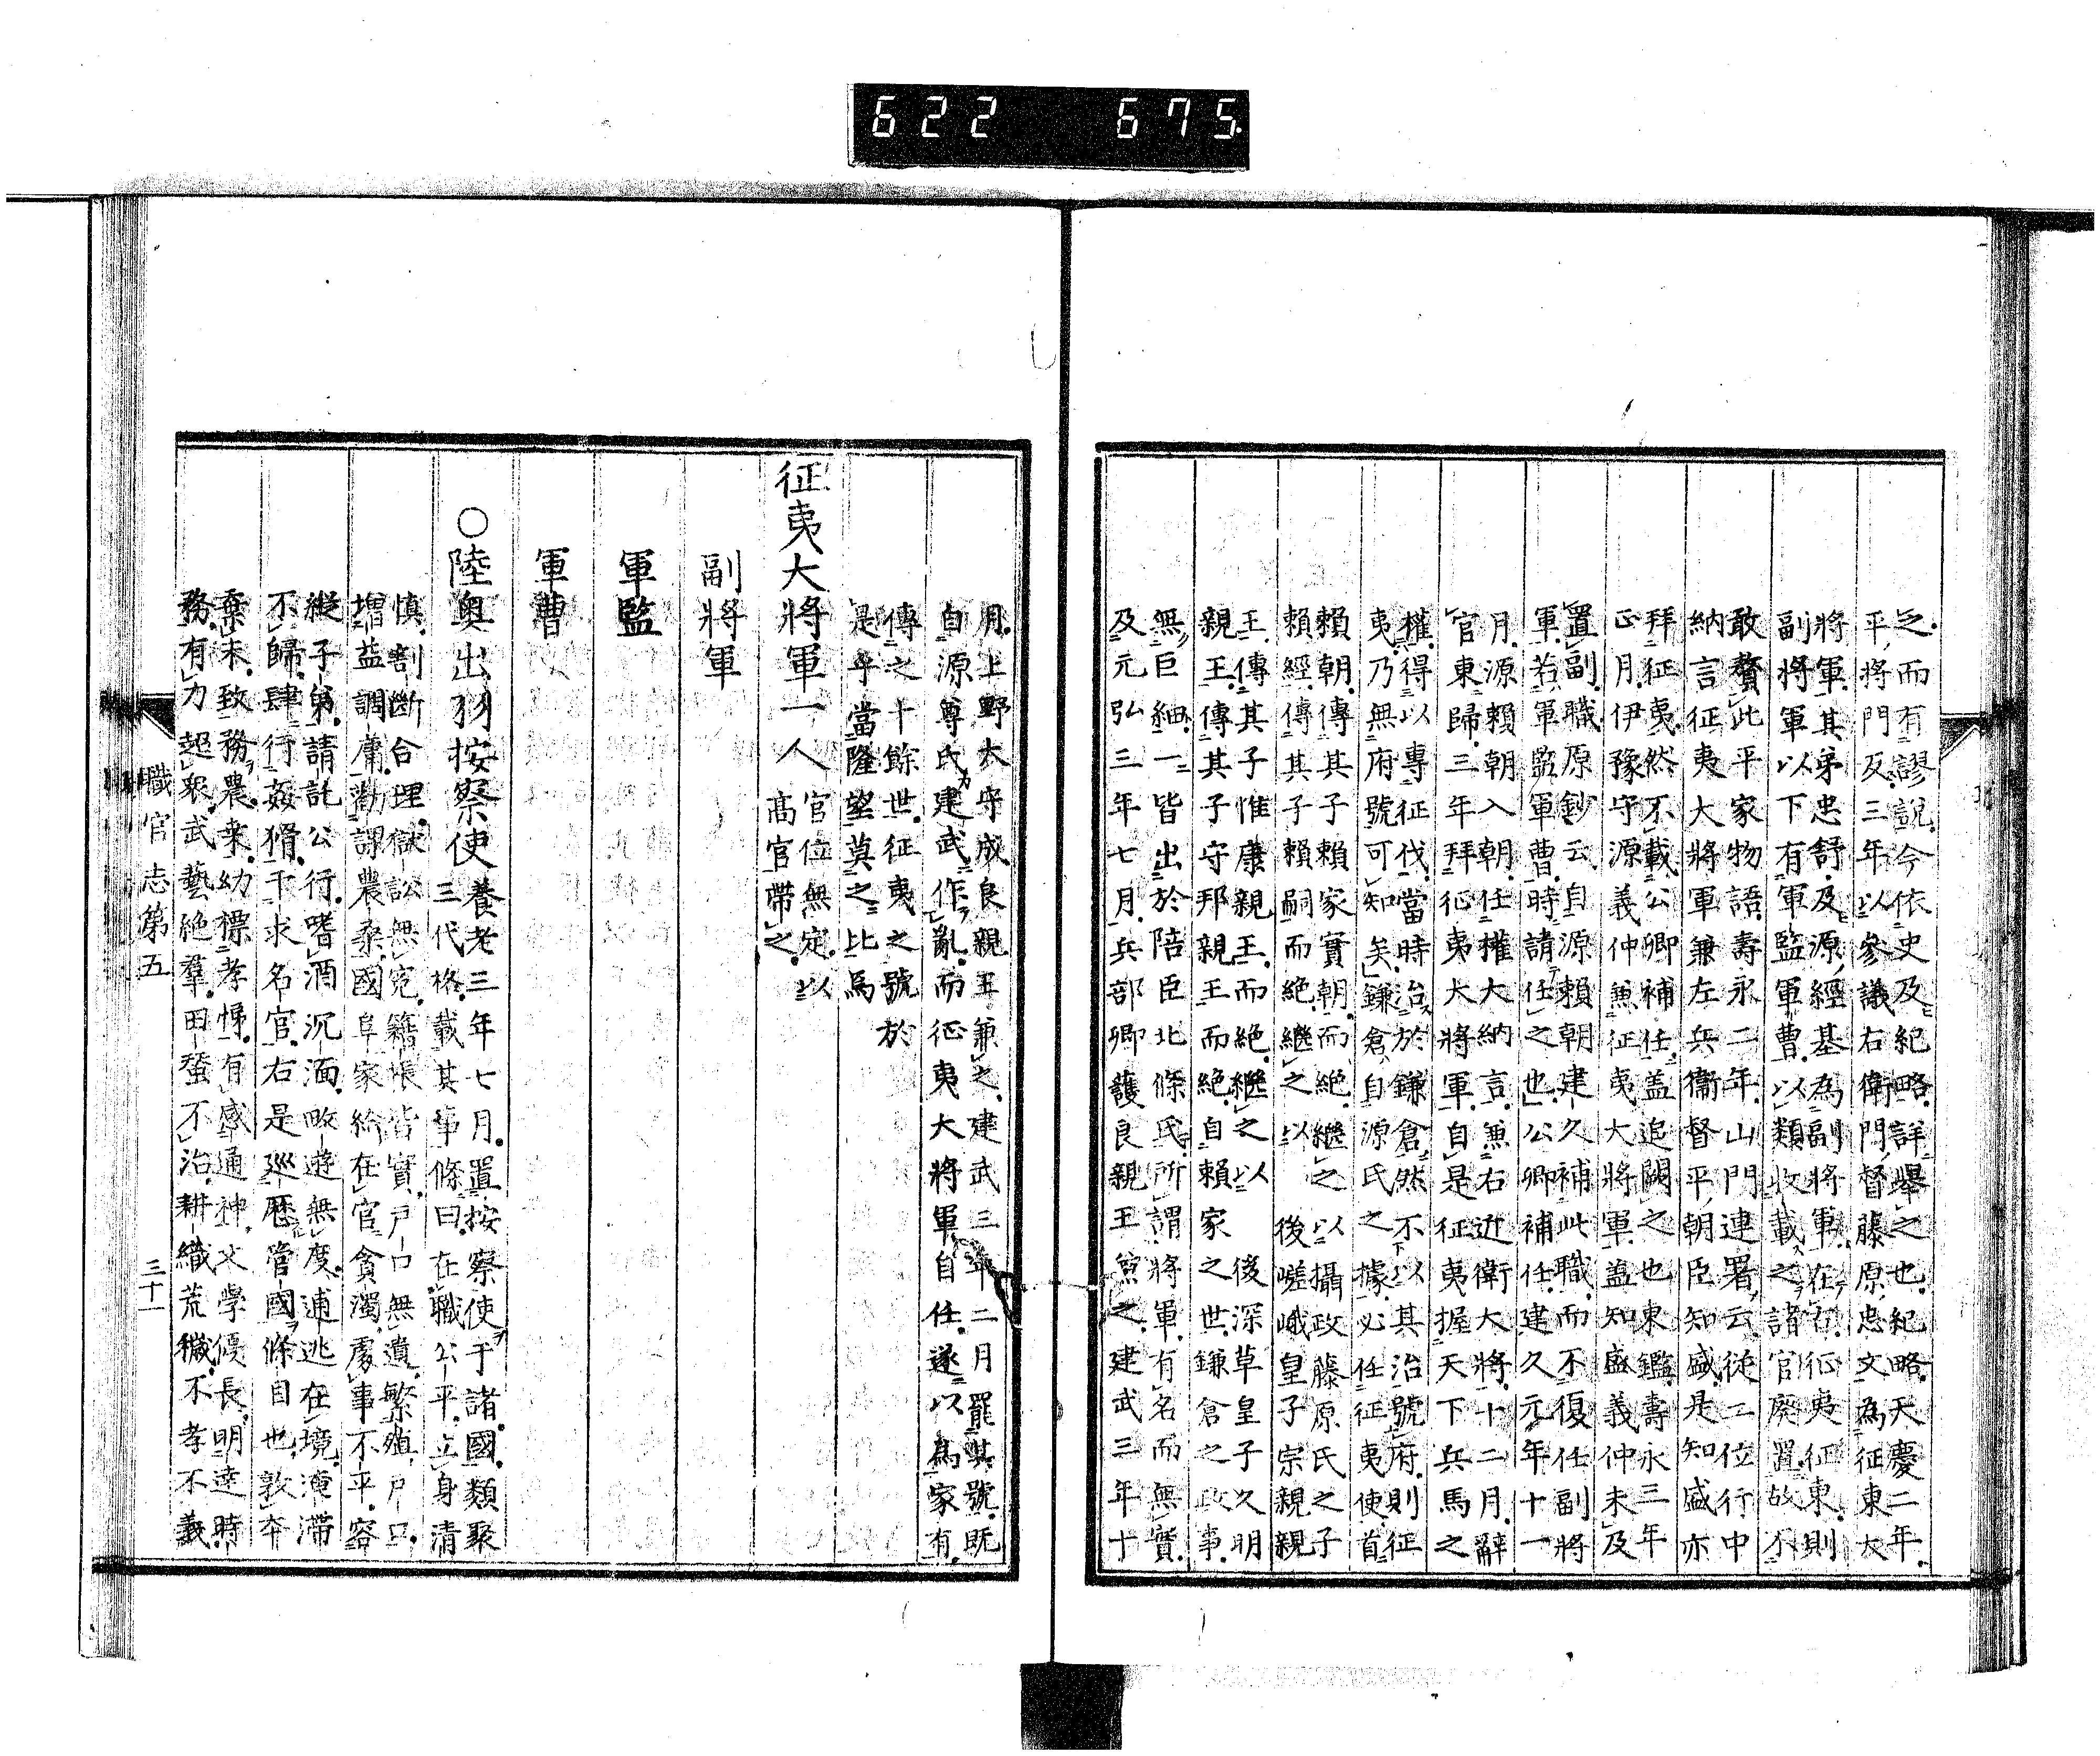 622 675
之而有謬說今依史及紀略詳舉之也紀略天慶二年
平將門反三年以參議右衛門督藤原忠文為征東大
將軍其弟忠舒及源經基為副將軍在右征夷征東則
副將軍以下有軍監軍曹以類收載之諸官廢置故不
敢贅此平家物語壽永二年山門連署云從二位行中
納言征夷大將軍兼左兵衞督平朝臣知盛是知盛亦
拜征夷然不載公卿補任盖追闕之也東鑑壽永三年
正月伊豫守源義仲兼征夷大將軍盖知盛義仲未及
置副職原鈔云自源賴朝建久補此職而不復任副將
軍若軍監軍曹時請任之也公卿補任建久元年十一
月源賴朝入朝任權大納言兼右近衛大將十二月辭
官東歸三年拜征夷大將軍自是征夷握天下兵馬之
權得以專征伐當時治於鎌倉然不以其治號府則征
夷乃無府號可知矣鎌倉自源氏之據必任征夷使首
賴朝傳其子賴家實朝而絕繼之以攝政藤原氏之子
賴經傳其子賴嗣而絕繼之以後嵯峨皇子宗親親
王傳其子惟康親王而絕繼之以後深草皇子久明
親王傳其子守邦親王而絕自賴家之世鎌倉之政事
無巨細一皆出於陪臣北條氏所謂將軍有名而無實
及元弘三年七月兵部卿護良親王兼之建武三年十
月上野太守成良親王兼之建武三年二月罷其號既
自源尊氏建武作亂而征夷大將軍自任遂以為家有
傳之十餘世征夷之號於
是乎當隆望莫之比焉
征夷大將軍一人 官位無定以
高官帶之
副將軍
軍監
軍曹
○陸奥出羽按察使 養老三年七月置按察使于諸國類聚
三代格載其事條曰在職公平立身清
慎割斷合理獄訟無寃籍帳皆實戶口無遺繁殖戶口
增益調庸勸課農桑國阜家給在官貪濁處事不平容
縱子第請託公行嗜酒沉湎畋遊無度逋逃在境淹滯
不歸肆行姦猾干求名官右是巡歷管國條目也敦本
棄末致務農桒幼標孝悌有感通神文學優長明達時
務有力超衆武藝絕羣田蚕不治耕織荒穢不孝不義
職官志第五
三十一